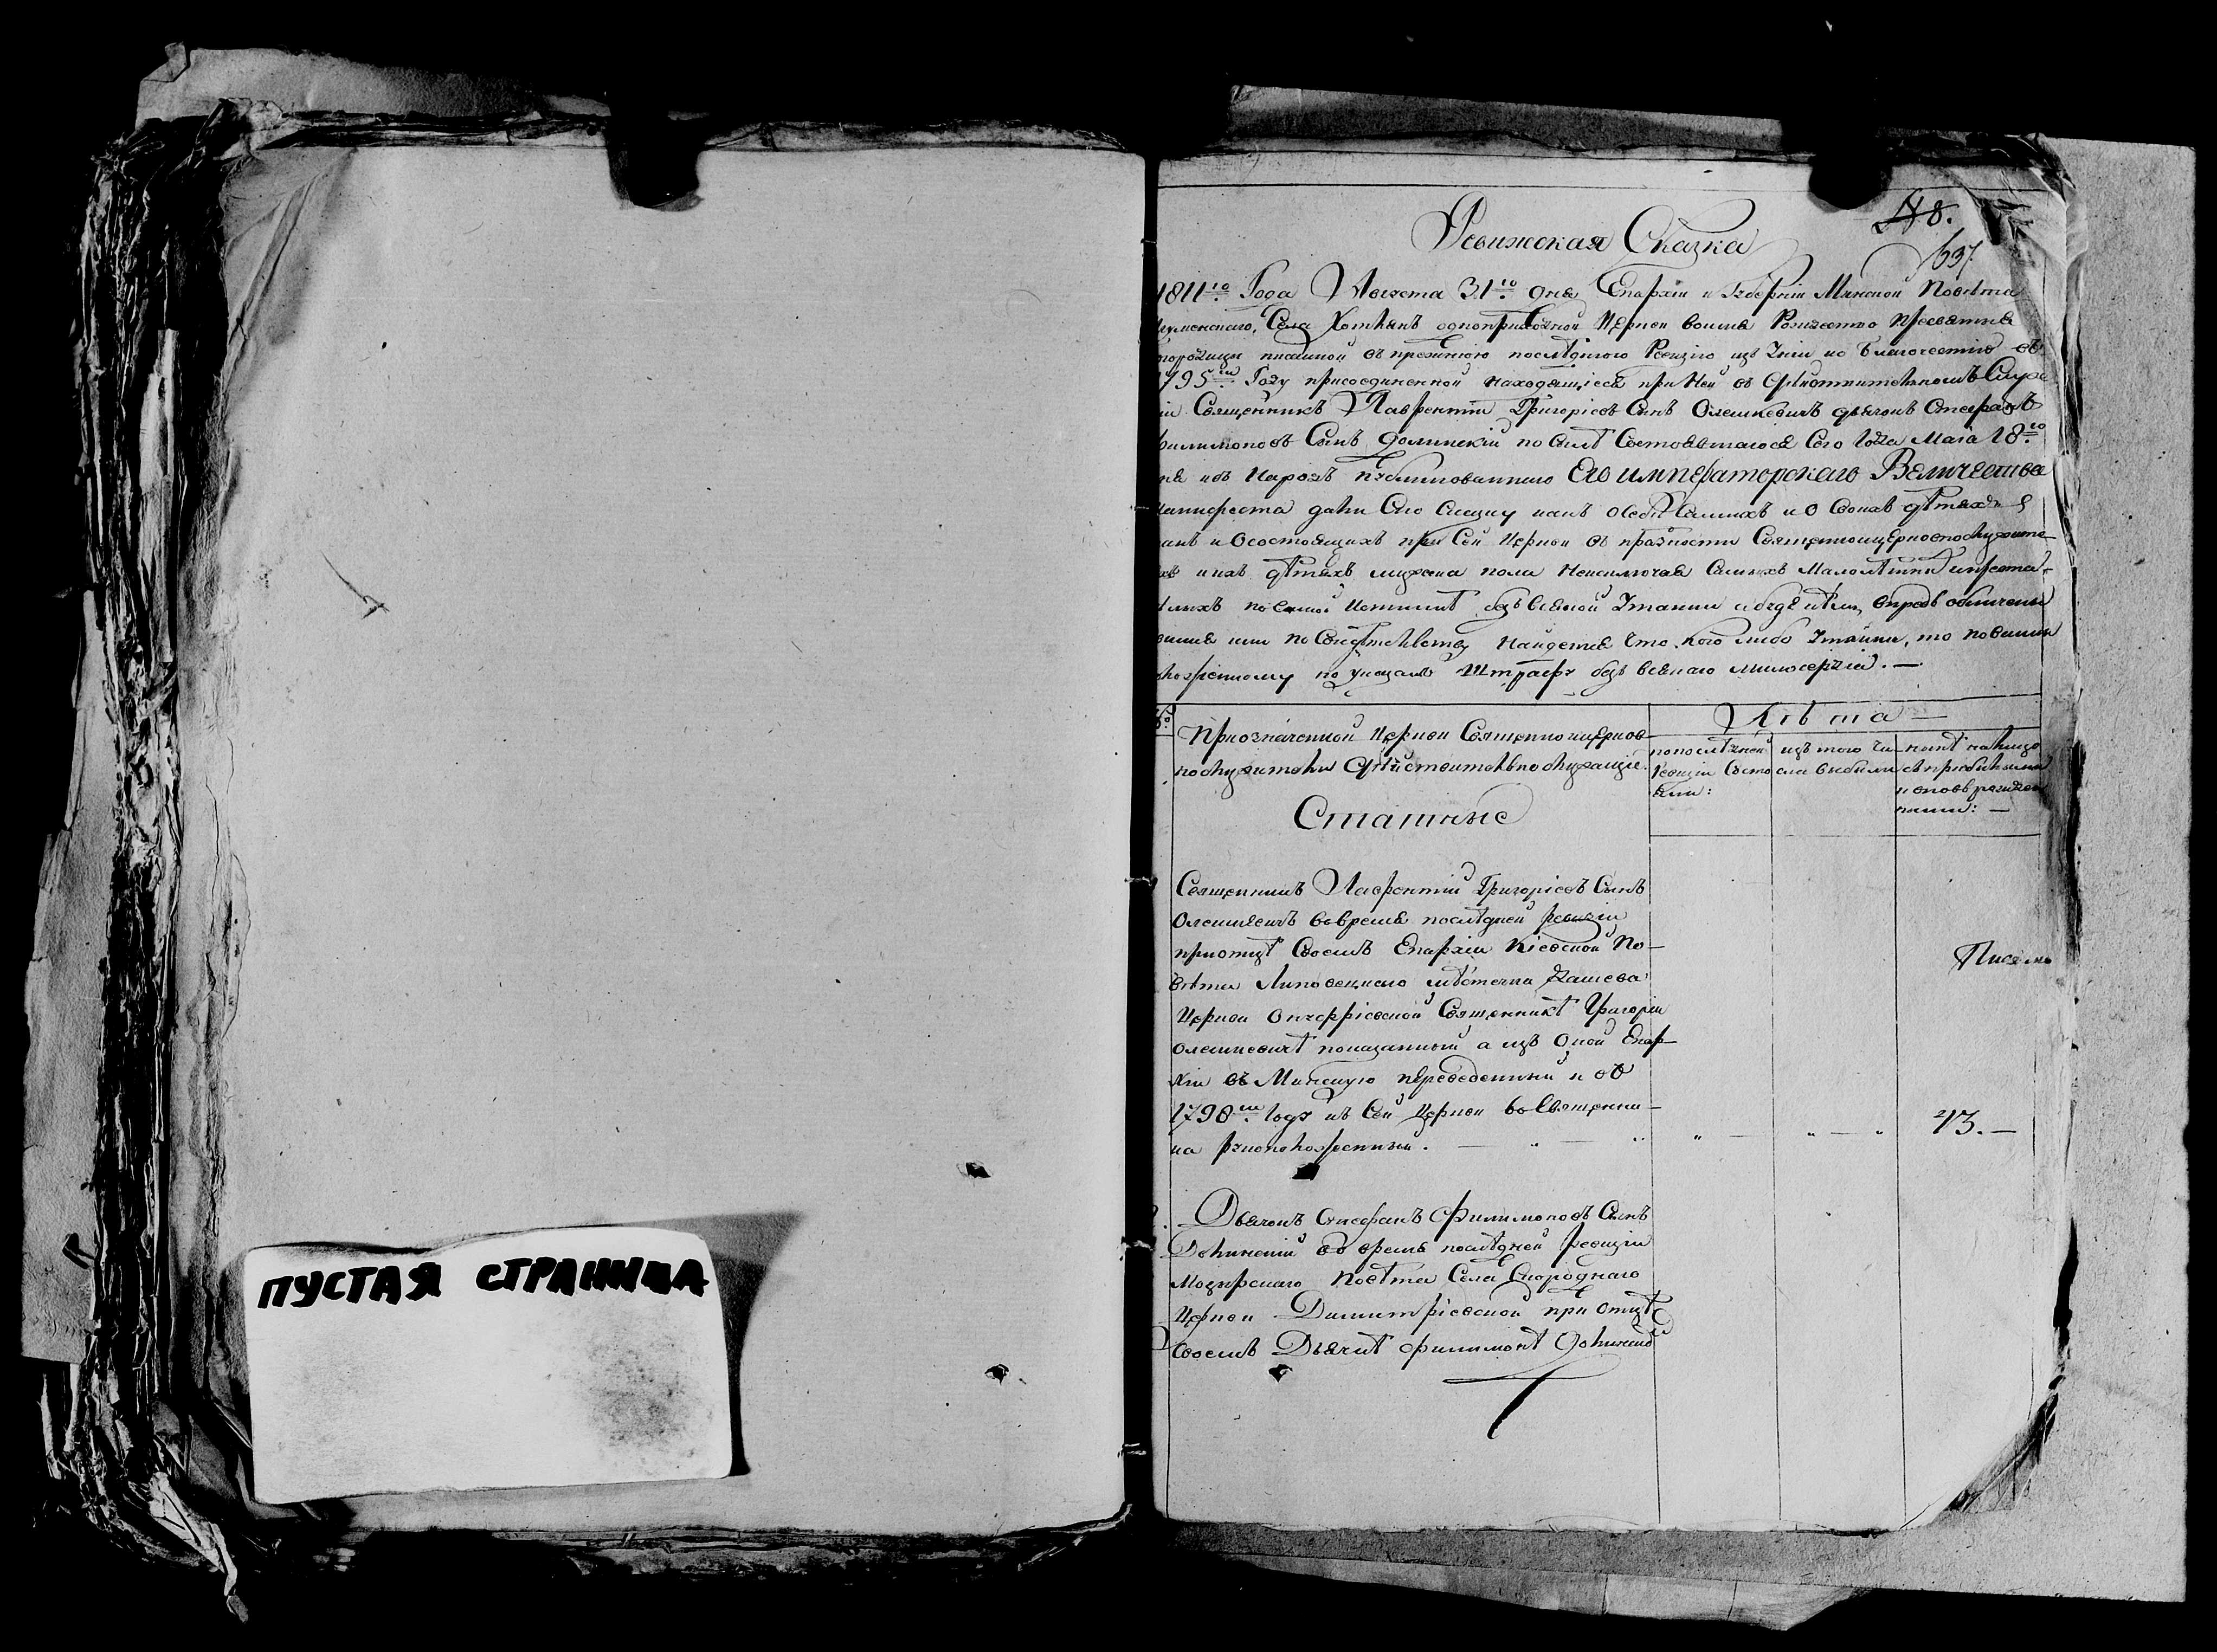 ПУСТАЯ СТРАНИЦА
№ 8.
637
Ревижская Сказка
1811го Года Августа 31го дня Епархіи и Губерніи Минской Повѣта
Села Хотлянъ одноприходной Церкви воимя Рождество Пресвятыя
писанной въ прежнюю послѣднюю Ревизію изъ Уніи ко Благочестію въ
1795м Году присоединенной находящіеся при Ней въ дѣйствительномъ
Священникъ Лаврентій Григоріевъ Сынъ Олешкевичъ дьячокъ Стефанъ
Филимоновъ Сынъ Долинскій по Силѣ Состоявшагося Сего Года Маія 18го
изъ Народъ публикованнаго Его императорскаго Величества
Манифеста дали Сію Сказку какъ о Себѣ Самихъ и О Своихъ дѣтяхъ
и О состоящихъ при Сей Церкви въ праздности
и ихъ дѣтяхъ мужска пола Неисключая Самыхъ Малолѣтнихъ и преста-
по Самой Истиннѣ безъ всякой Утайки а буде
или по Свидѣтельству Найдется Что кого либо Утаили, то повинни
по указамъ Штрафу безъ всякаго милосердія. —
При означенной Церкви Священноцерков-
нослужители дѣйствительнослужащіе
Лѣта —
по послѣдней Ревизіи Состо яли:
изъ того Чи сла выбыли
нынѣ на лицо съ прибылыми и вновь рожден ными: —
Статные
Священникъ Лаврентій Григоріевъ Сынъ
Олешкевичъ вовремя послѣдней ревизіи
при отцѣ Своемъ Епархіи Кіевской По-
вѣта Липовецкаго мѣстечка Дашева
Церкви Онуфріевской Священникѣ Григоріи
Олешкевичѣ показанный а изъ Оной Епар-
хіи въ Минскую переведенный и въ
1798м Году къ Сей Церкви во Священни-
ка рукоположенный. —
43. —
Дьячокъ Стефанъ Филимоновъ Сынъ
Долинскій во время послѣдней ревизіи
Мозырскаго Повѣта Села Скороднаго
Церкви Димитріевской при Отцѣ
Своемъ Дьячкѣ Филимонѣ Долинскомъ